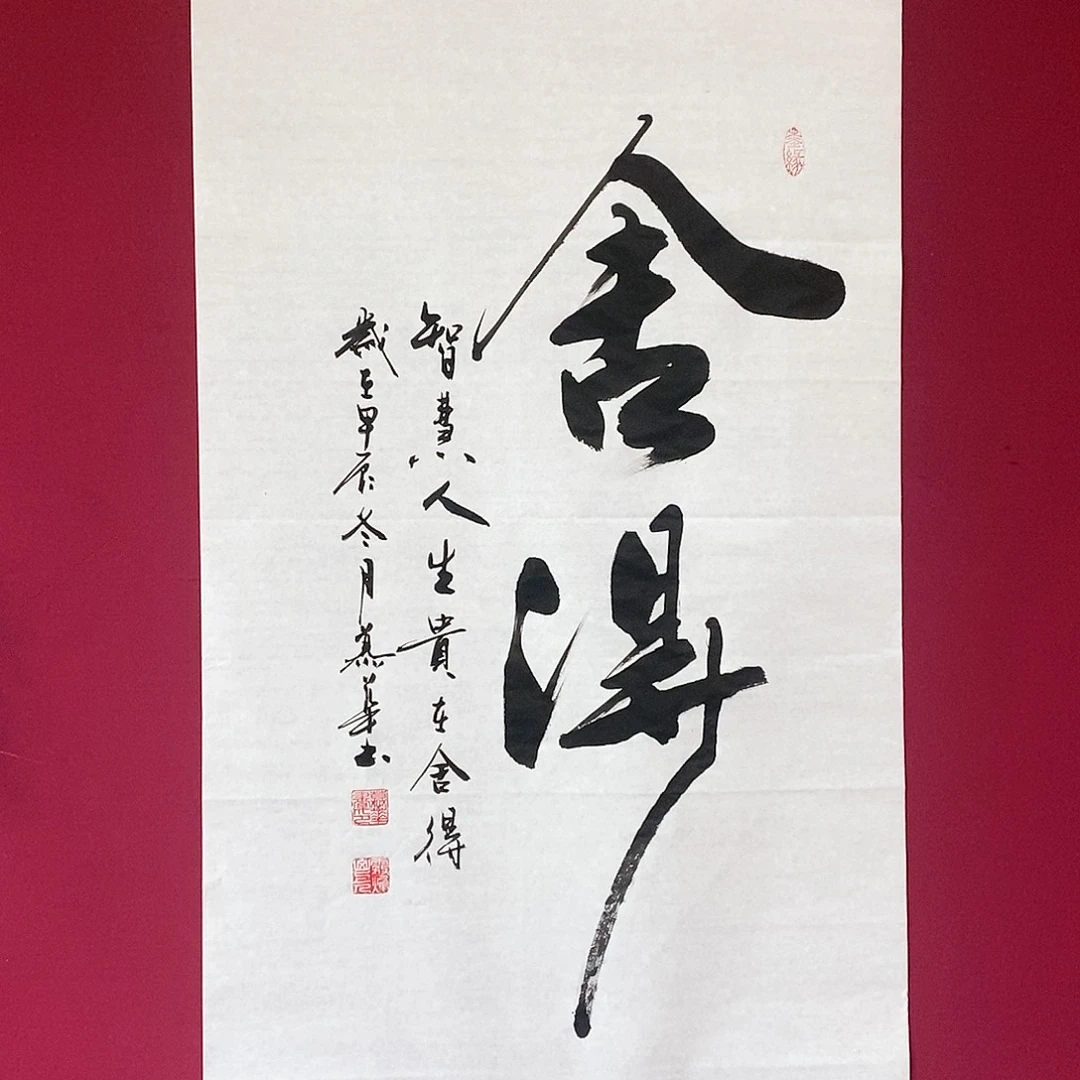 舍得
智慧人生貴在舍得
歲在甲辰冬月慕華书